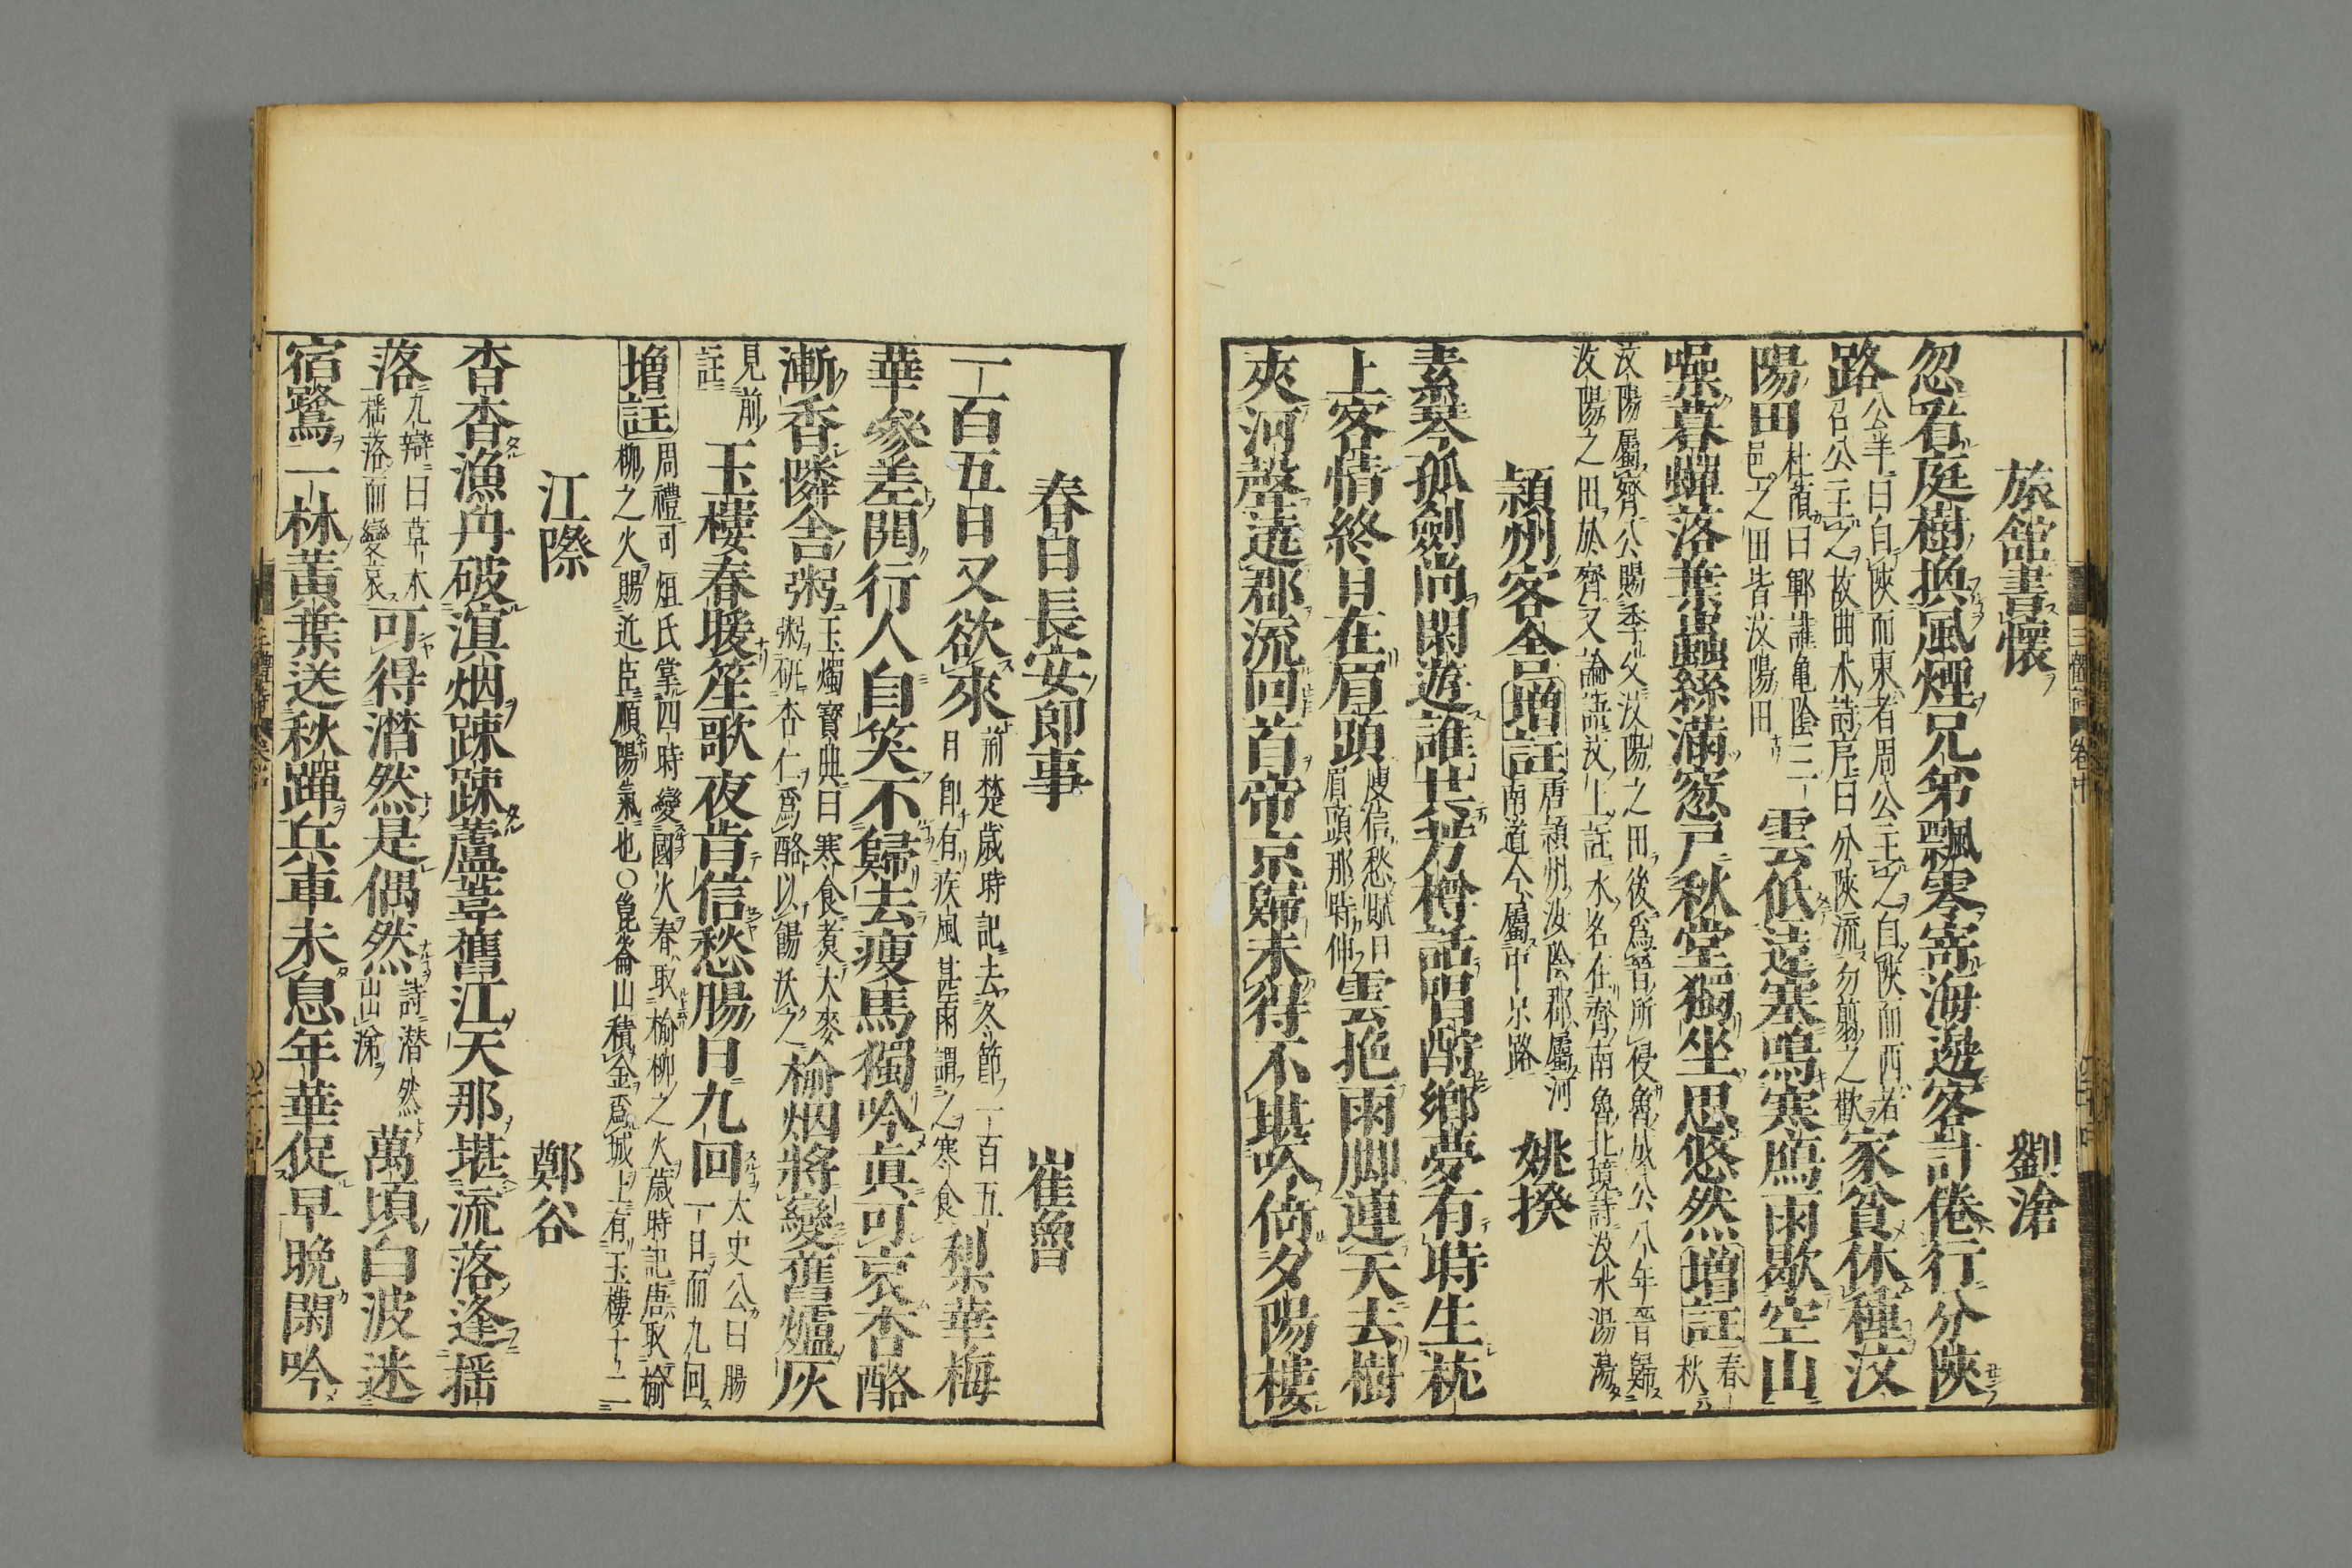 旅舘書懷　劉滄
忽看庭樹換風煙兄弟飄零寄海邊客計倦行分陝
路公羊曰自陝而東者周公主之自陝而西者
召公主之故曲水詩序曰分陝流勿翦之歡家貧休種汶
陽田杜預曰鄆讙亀陰三
邑之田皆汶陽田雲低遠塞鳴寒鴈雨歇空山
噪暮蟬落葉蟲絲滿窓戸秋堂獨坐思悠然増註春
秋
汶陽屬齊公賜季友汶陽之田後爲晉所侵魯成公八年晉歸
汶陽之田於齊又論語汶上註水名在齊南魯北境詩汶水湯湯
潁州客舎増註唐潁州汝陰郡屬河
南道今屬中京路姚揆
素琴孤劍尚閑遊誰共芳樽話唱酧鄉夢有時生枕
上客情終日在眉頭庾信愁賦曰
眉頭那時伸雲拖雨脚連天去樹
夾河聲遶郡流回首帝京歸未得不堪吟倚夕陽樓
春日長安即事　崔魯
一百五日又欲來荊楚歳時記去冬節一百五
日即有疾風甚雨謂之寒食梨華梅
華參差開行人自笑不歸去瘦馬獨吟眞可哀杏酪
漸香隣舎粥玉燭寳典曰寒食煮大麥
粥研杏仁爲酪以餳沃之楡烟將變舊爐灰
見前
註玉樓春暖笙歌夜肯信愁腸日九回大史公曰腸
一日而九回
増註周禮司烜氏掌四時變國火春取楡柳之火歳時記唐取楡
柳之火賜近臣順陽氣也○崑崙山積金爲城上有玉樓十二
江際　鄭谷
杳杳漁舟破瞑烟踈踈蘆葦舊江天那堪流落逢揺
落九辯曰草木
揺落而變衰可得潸然是偶然詩潸然
出涕萬頃白波迷
宿鷺一林黃葉送秋蟬兵車未息年華促早晩閑吟